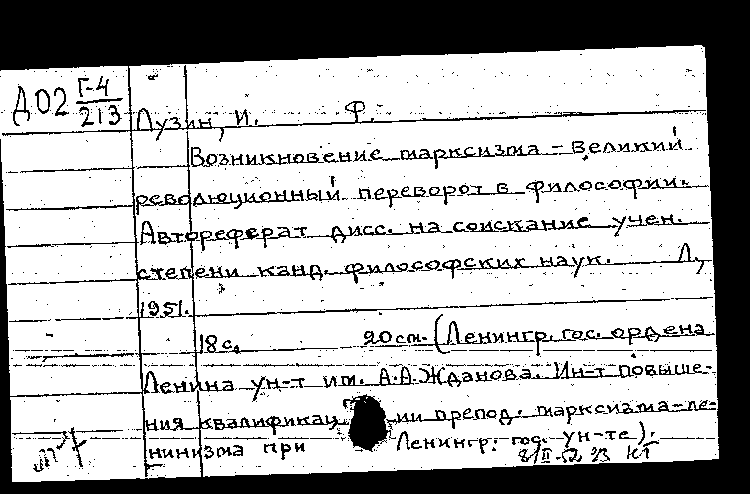 Д02 Г-4/213
Лузин, И. Ф.
Возникновение марксизма – великий
революционный переворот в философии.
Автореферат дисс. на соискание учен.
степени канд. философских наук. Л.,
1951.
18 с. 20 см. (Ленингр. гос. ордена
Ленина ун-т им. А.А.Жданова. Ин-т повыше-
ния квалификации препод. марксизма-ле-
нинизма при Ленингр. гос. ун-те).
8/II-52 КГ